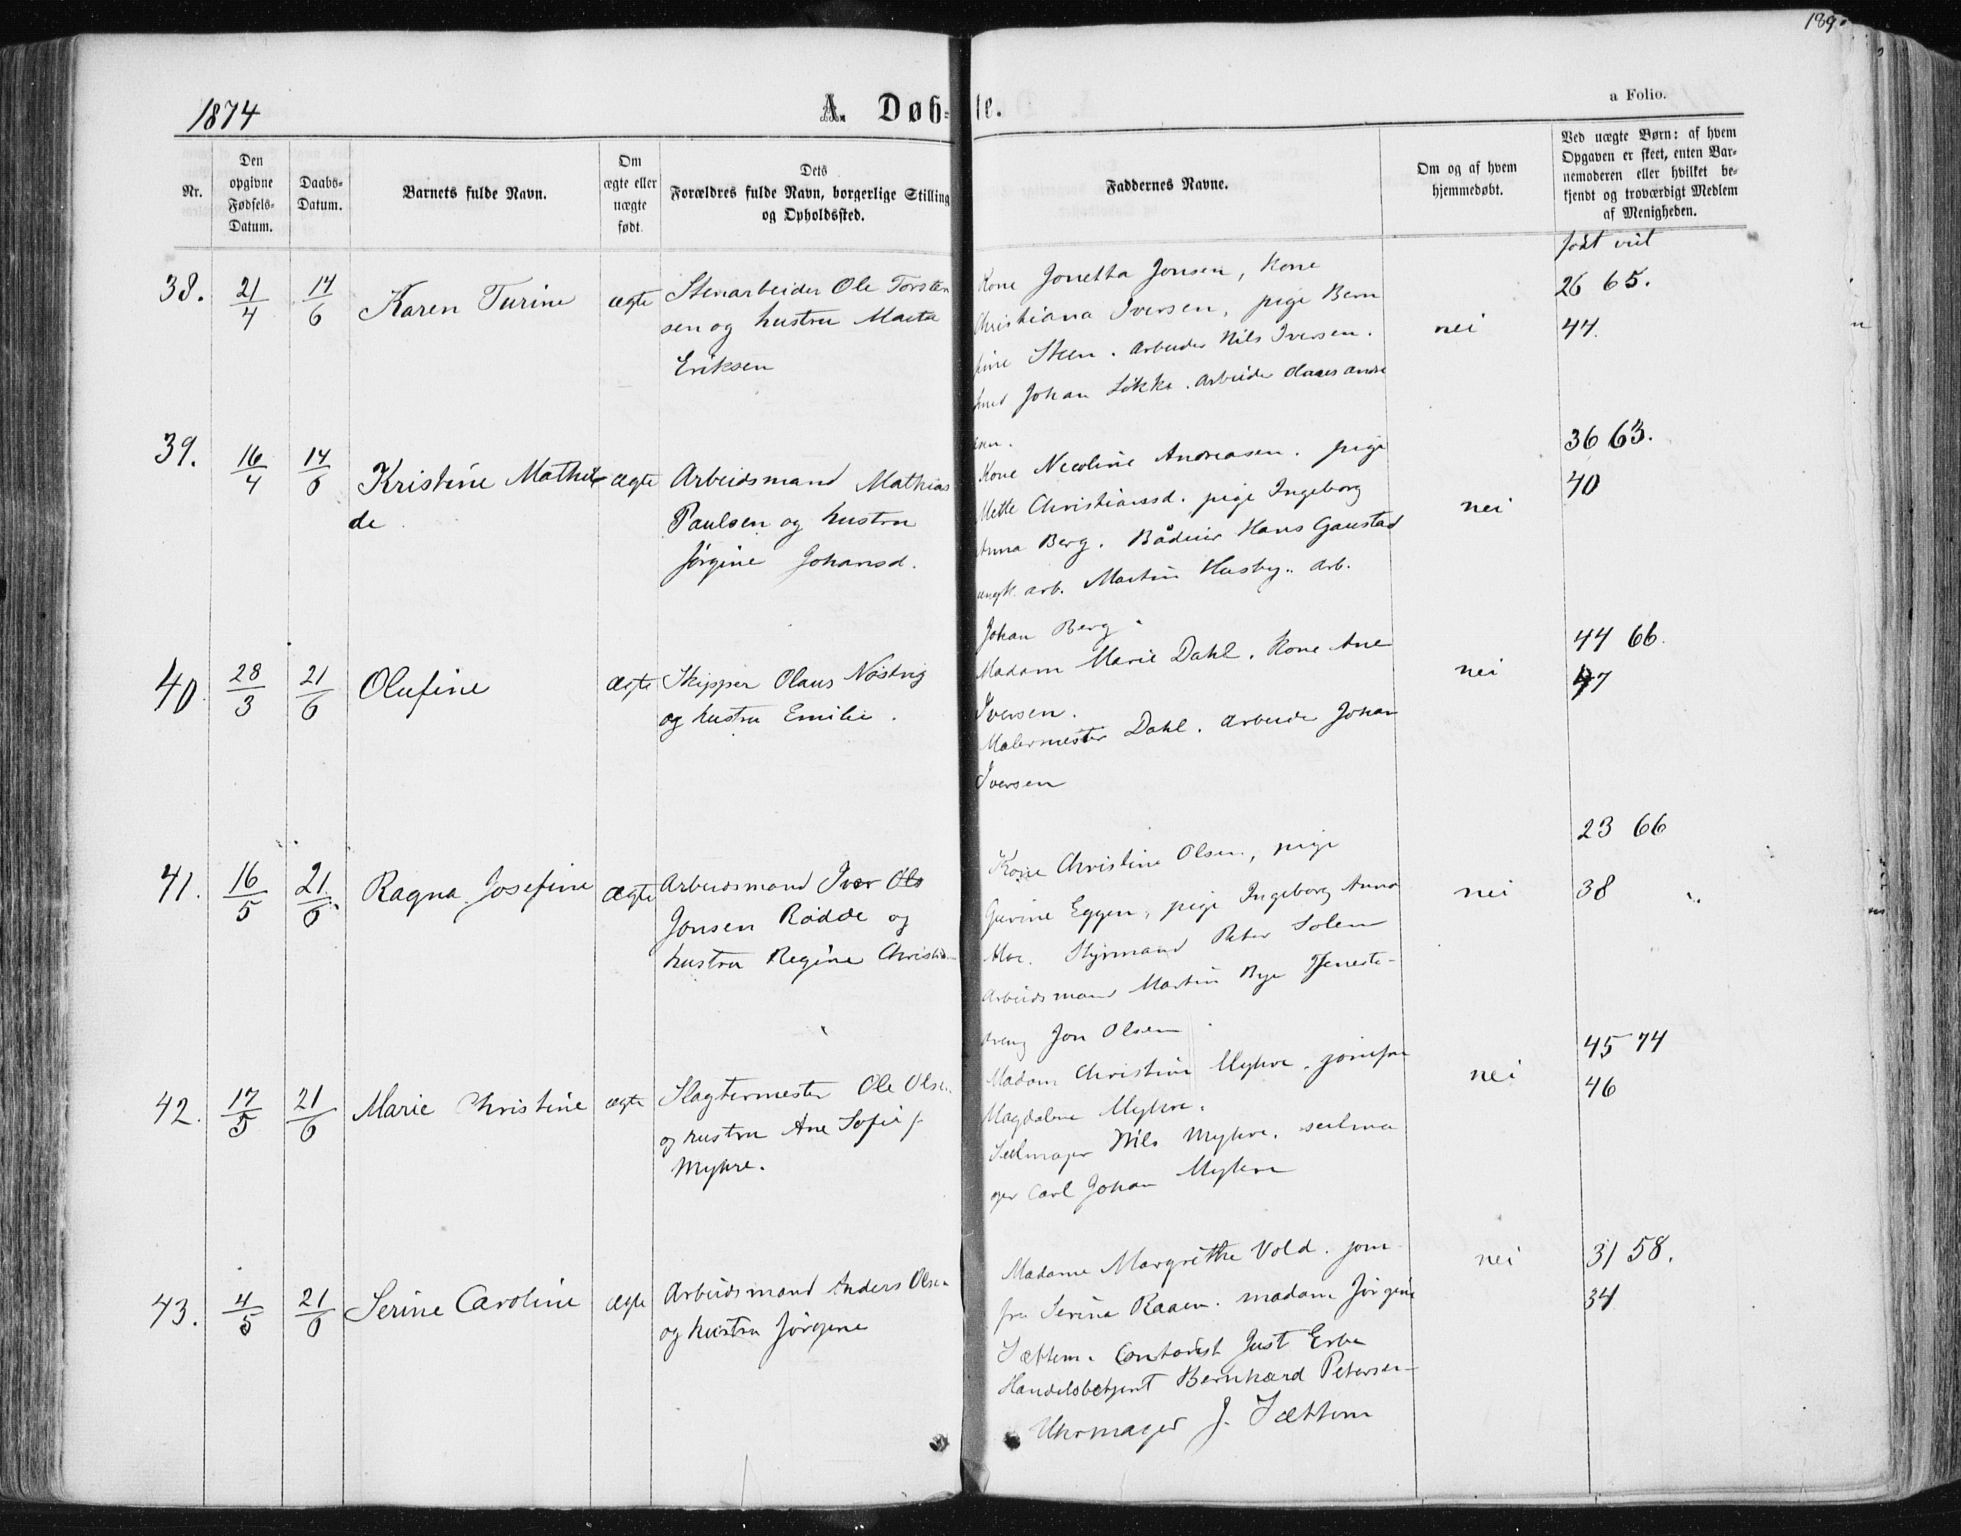 189.
1874
A. Døb-te.
a Folio.
Nr.
Den opgivne Fødsels-Datum.
Daabs-Datum.
Barnets fulde Navn.
Om ægte eller uægte født.
Dets Forældres fulde Navn, borgerlige Stilling og Opholdssted.
Faddernes Navne.
Om og af hvem hjemmedøbt.
Ved uægte Børn: af hvem Opgaven er skeet, enten Barnemoderen eller hvilket bekjendt og troværdigt Medlem af Menigheden.
født viet
38. 21/4 14/6 Karen Turine ægte
Stenarbeider Ole Torsten
sen og hustru Marta
Eriksen
Kone Jonetta Jonsen, Kone
Christiana Iversen, pige Bern
fine Steen. Arbeider Nils Iversen.
Johan Løkke. Arbeider Olaus Andre
sen.
nei
26 65.
44.
39. 16/4 14/6 Kristine Mathil
de
ægte
Arbeidsmand Mathias
Paulsen og hustru
Jørgine Johansd.
Kone Nicoline Andreasen. pige
Mette Christiansd. pige Ingeborg
Anna Berg. Hans Gaustad
arb. Martin Husby. arb.
Johan Berg.
nei
36 63.
40
40 28/3 21/6 Olufine ægte
Skipper Olaus Nøstvig
og hustru Emilie.
Madam Marie Dahl. Kone Ane
Iversen.
Malermester Dahl. Arbeider Johan
Iversen
nei
44 66.
47
41. 16/5 21/6 Ragna Josefine ægte
Arbeidsmand Iver Ols
Jonsen Rødde og
hustru Regine Christi
Kone Christine Olsen, pige
Gurine Eggen, pige Ingeborg Anna
Moe. Styrmand Peter Solem
Arbeidsmand Martin Rye Tjeneste-
dreng Jon Olsen
nei
23 66
38
42. 17/5 21/6 Marie Christine ægte
Slagtermester Ole Olsen
og hustru Ane Sofie f.
Myhre.
Madam Christine Myhre. jomfru
Magdalene Myhre.
Seilmager Nils Myhre. seilma
ger Carl Johan Myhre
nei
45 74
46
43. 4/5 21/6 Serine Caroline ægte
Arbeidsmand Anders Olsen
og hustru Jørgine
Madame Margrethe Vold. jom
fru Serine Raaen. madam Jørgine
Sættem. Contorist Just Erbe
Handelsbetjent Bernhard Petersen
Uhrmager J. Sættem
nei
31 58.
34